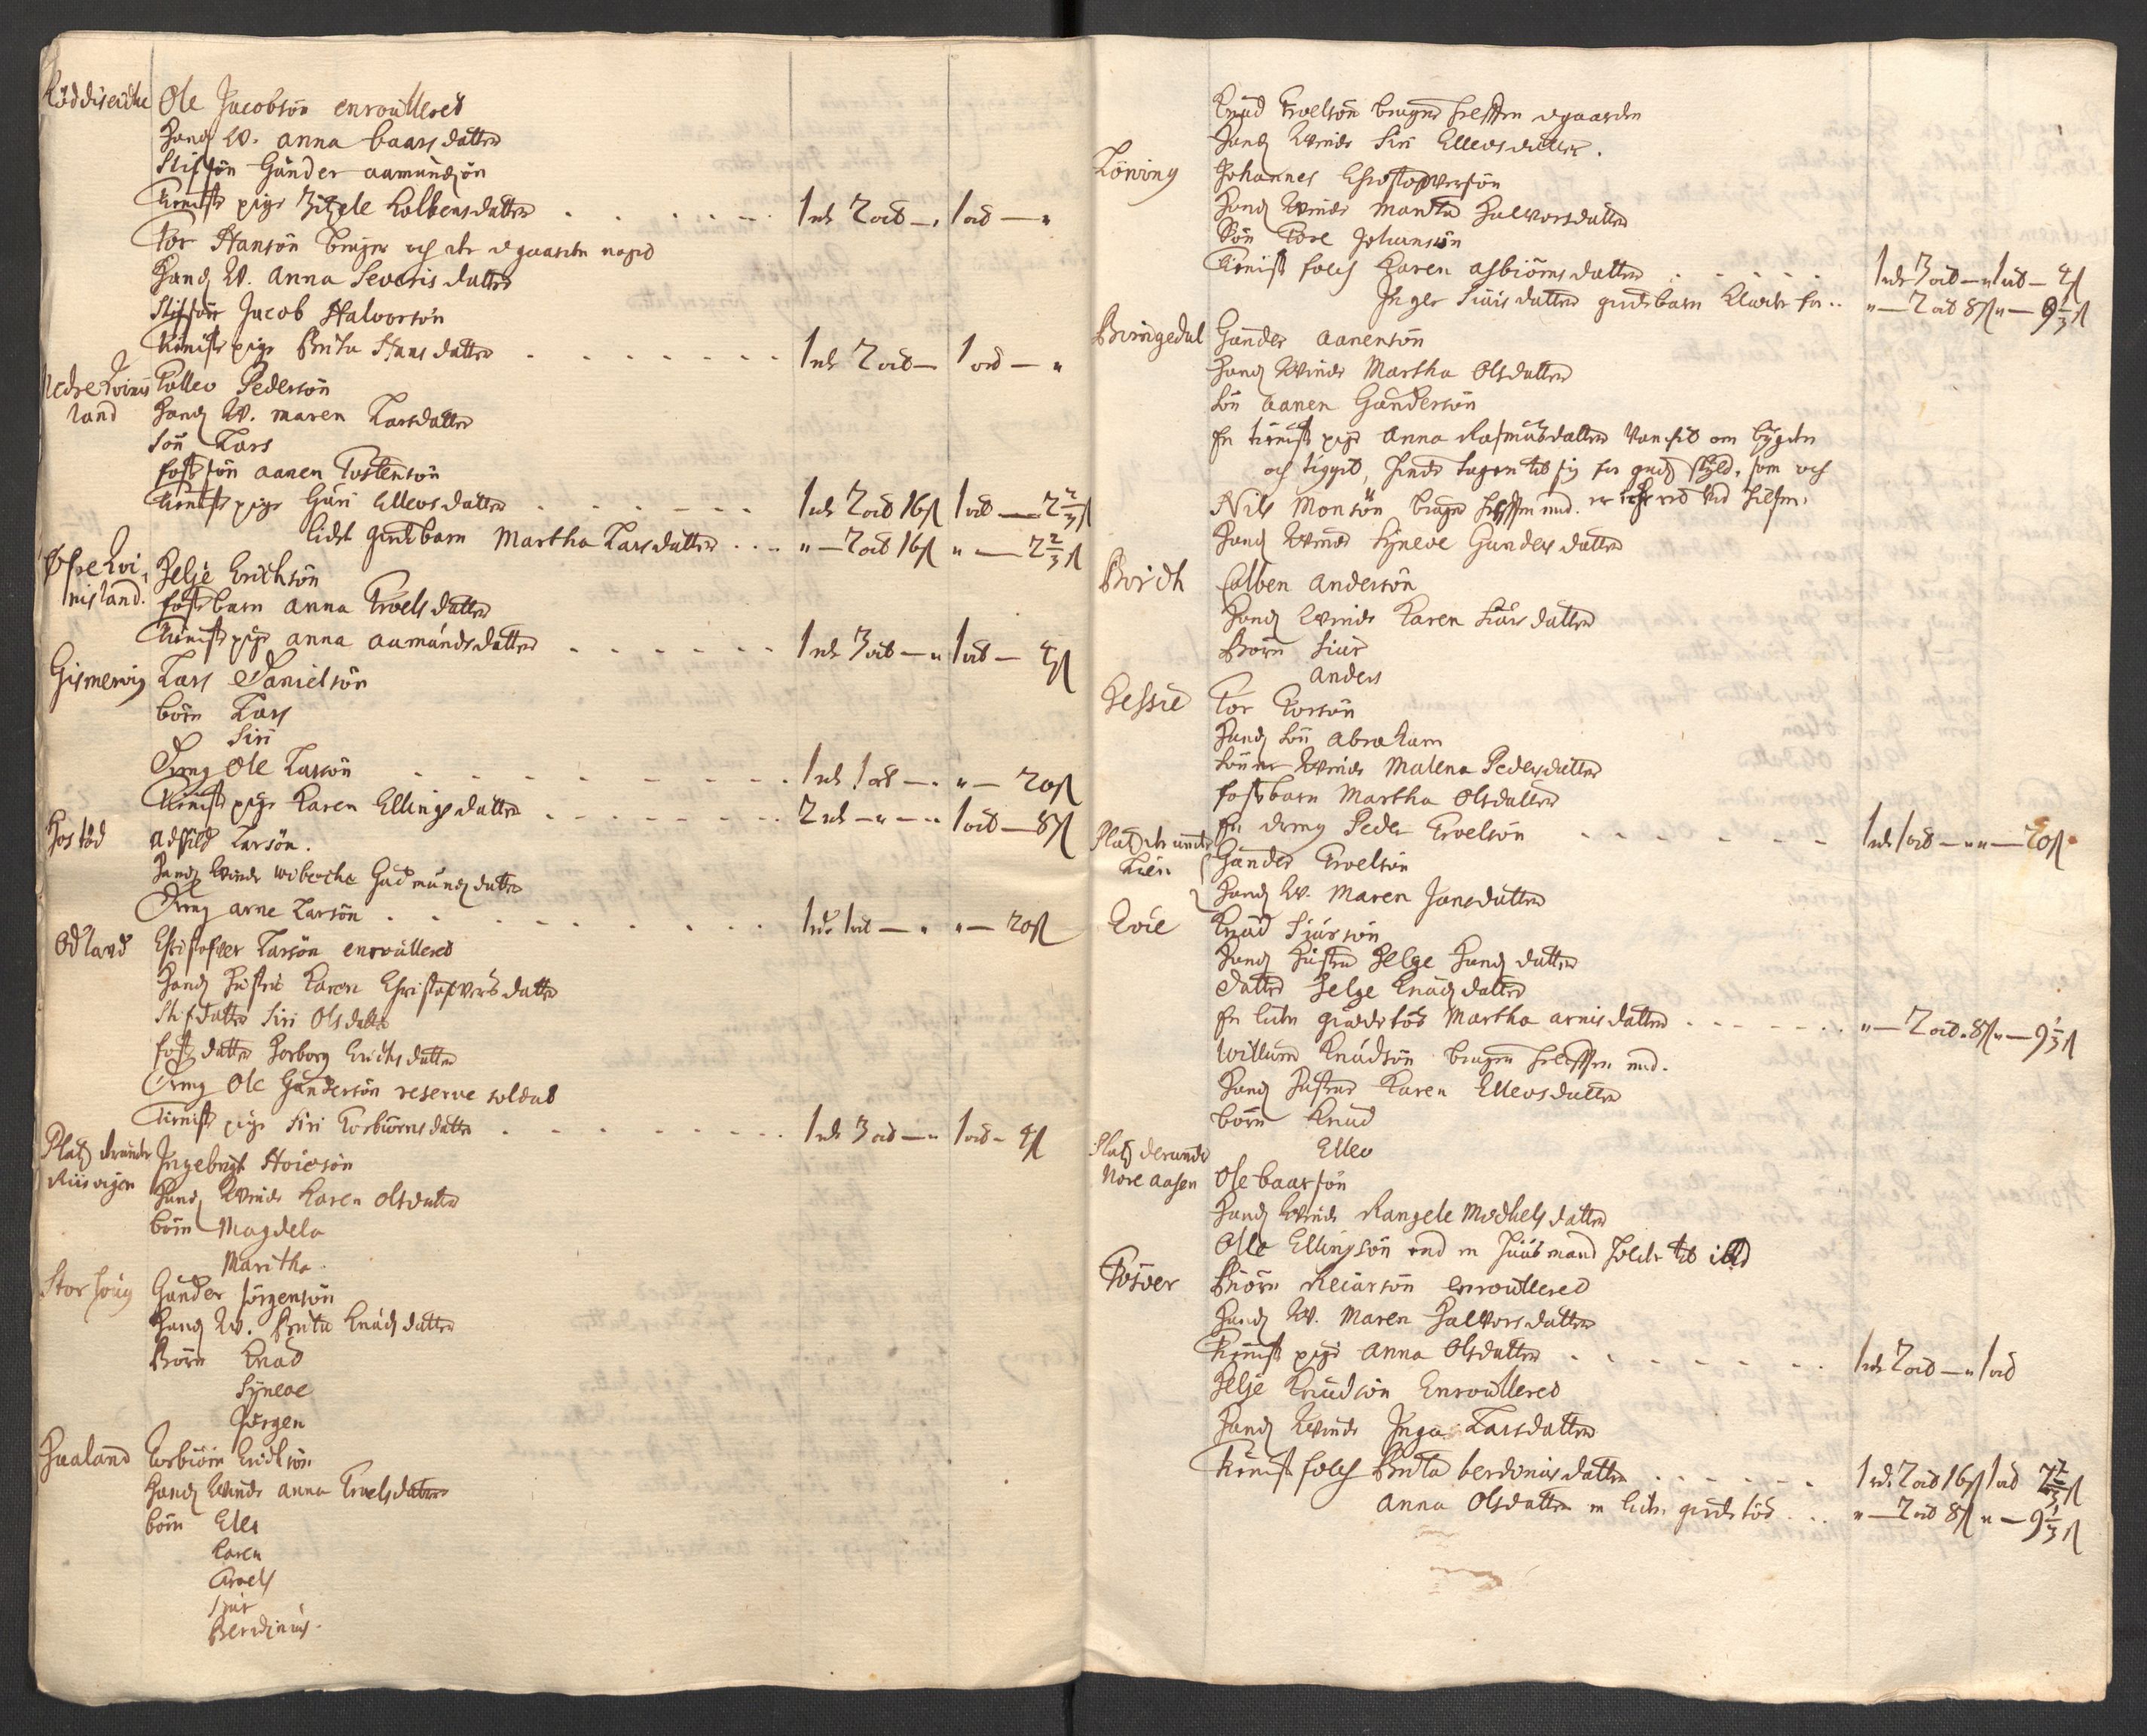 Ole Jacobsön enroulleret
Hans W. anna baars datter
Stifsön Gunder aamundsön
Tienist pige Zitzele Kolbensdatter . . . . . 1 rdr 2 ort — " 1 ort — "
Tor Hansön bruger
Hans W. Anna Severis datter
Stifsön Jacob Halvorsön
Tienist pige Brita Hansdatter . . . . . . . . 1 rdr 2 ort — 1 ort — "
Nedre Qvinis land
Tollev Pedersön
Hans W. maren Larsdatter
Sön Lars
fostersön aanen Tostensön
Tienist pige Guri Ellevsdatter . . . . . . 1 rdr 2 ort 16 s 1 ort — 2 2/3 s
lidet gudsbarn Martha Larsdatter . . . " — 2 ort 16 s " — 2 2/3 s
Öfre Qvi- nisland.
Helje Erichsön
foster barn anna Troelsdatter
Tienist pige anna aamundsdatter . . . . . . 1 rdr 3 ort — " 1 ort — 4 s
Gismervig Lars Danielsön
börn Lars
Siri
Dreng Ole Larsön . . . . . . . . 1 rdr 1 ort — " " — 20 s
Tienist pige Karen Ellingsdatter . . . . . . 2 rdr — " — " 1 ort — 8 s
Larsön.
Hans Qvinde wibeche Gudmundsdatter
Dreng arne Larsön . . . . . . . 1 rdr 1 ort — " " — 20 s
Odland Christoffer Larsön enroulleret
Hans Hustru Karen Christofversdatter
Stifdatter Siri Olsdatter
foster datter Horborg Erichsdatter
Dreng Ole Gundersön reserve soldat
Tienist pige Siri Torbiörnsdatter . . . . . . . . 1 rdr 3 ort — " 1 ort — 4 s
Plads derunder Riisvigen
Ingebrigt
Hans Qvinde Karen olsdatter
börn Magdela
Maritha.
Storhoug Gunder Jörgensön
Hans W. Brita Knudsdatter
Börn Knud
Syneve
Jörgen
Hualand Torbiörn Erichsön
Hans Qvinde anna Troelsdatter
börn Elen
Karen
Troels
Siur
Berdinus.
Knud Troelsön bruger helften i gaarden
Hans Qvinde Siri Ellevsdatter.
Löning Johannes Christopversön
Hans Qvinde Marita Halvorsdatter
Sön Tore Johansön
Tienist folch Karen asbiörnsdatter . . . . . 1 rdr 3 ort — " 1 ort — 4 s
Inger Siursdatter gudsbarn . . " — 2 ort 8 s " — 9 1/3 s
Bringedal Gunder aanensön
Hans Qvinde Martha Olsdatter
Sön aanen Gundersön
En tienist pige Anna Rasmusdatter om bygden
och tigget, hende tagen til sig for guds skyld, som och
Nils Monsön bruger helften
Hans Qvinde Syneve Gundersdatter
Colben andersön
Hans Qvinde Karen Siursdatter
Börn Siur
anders
Tor Torsön
Hans Sön abraham
Qvinde Malena Pedersdatter
foster barn Martha Olsdatter
En dreng Peder Troelsön . . . . . . 1 rdr 1 ort — " " — 20 s
Plads derunder
Gunder Troelsön
Hans W. Maren Jonsdatter
Knud Siursön
Hans hustru Helge Hansdatter
datter Helge Knudsdatter
En liden Martha arnisdatter . . . . . . " — 2 ort 8 s " — 9 1/3 s
Willum Knudsön bruger helften
Hans hustru Karen Ellevsdatter
börn Knud
Ellev
Plads derunder Nore aasen
Ole baarsön
Hans Qvinde Rangele Michelsdatter
Olle Ellingsön
Fosver Biörn Reiarsön enroulleret
Hans W. Maren Halvorsdatter
Tienist pige Anna Olsdatter . . . . . . . 1 rdr 2 ort — " 1 ort
Helje Knudsön Enroulleret
Hans Qvinde Inga Larsdatter
Tienist folch Brita berdinusdatter . . . . . . 1 rdr 2 ort 16 s 1 ort 2 2/3 s
Anna Olsdatter en liden . . . " — 2 ort 8 s " — 9 1/3 s